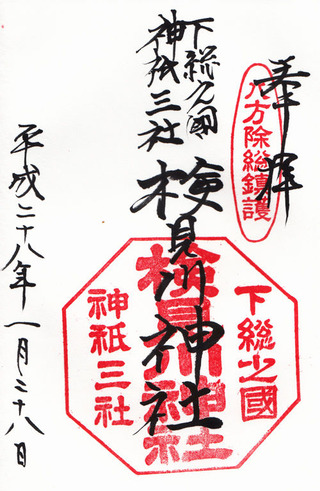 奉拝
八方除総鎮護
下総之國
神祇三社
検見川神社
下総之國
検見川神社
神祇三社
平成二十八年一月二十八日